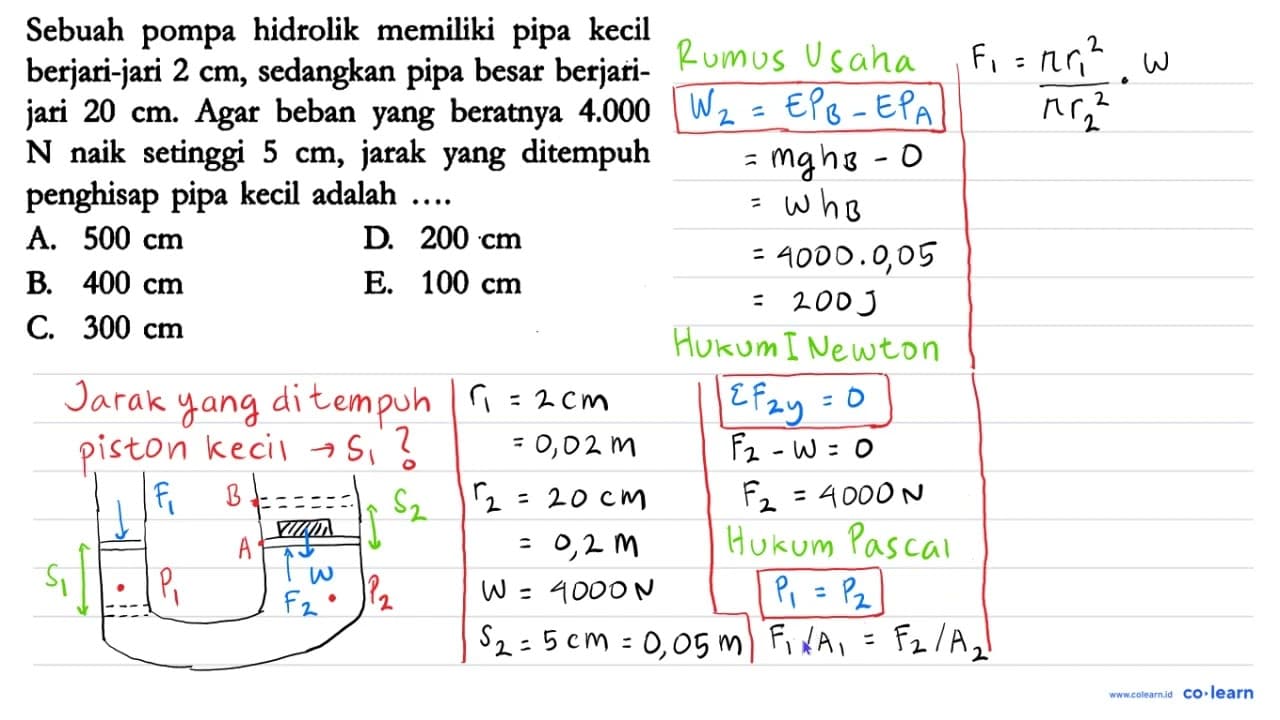 Sebuah pompa hidrolik memiliki pipa kecil
berjari-jari 2 cm, sedangkan pipa besar berjari-
jari 20 cm. Agar beban yang beratnya 4.000
N naik setinggi 5 cm, jarak yang ditempuh
penghisap pipa kecil adalah ....
A. 500 cm D. 200 cm
B. 400 cm E. 100 cm
C. 300 cm
Rumus Usaha
W₂ = EP_B - EP_A
= mgh_B - 0
= Wh_B
= 4000.0,05
= 200 J
Hukum I Newton
F₁ = πr₁²/πr₂² . W
Jarak yang ditempuh
piston kecil → S₁ ?
F₁ B S₂
A
S₁ P₁ W P₂
F₂
r₁ = 2 cm
= 0,02 m
r₂ = 20 cm
= 0,2 m
W = 4000 N
S₂ = 5 cm = 0,05 m
ΣF₂y = 0
F₂ - W = 0
F₂ = 4000 N
Hukum Pascal
P₁ = P₂
F₁/A₁ = F₂/A₂
www.colearn.id co·learn